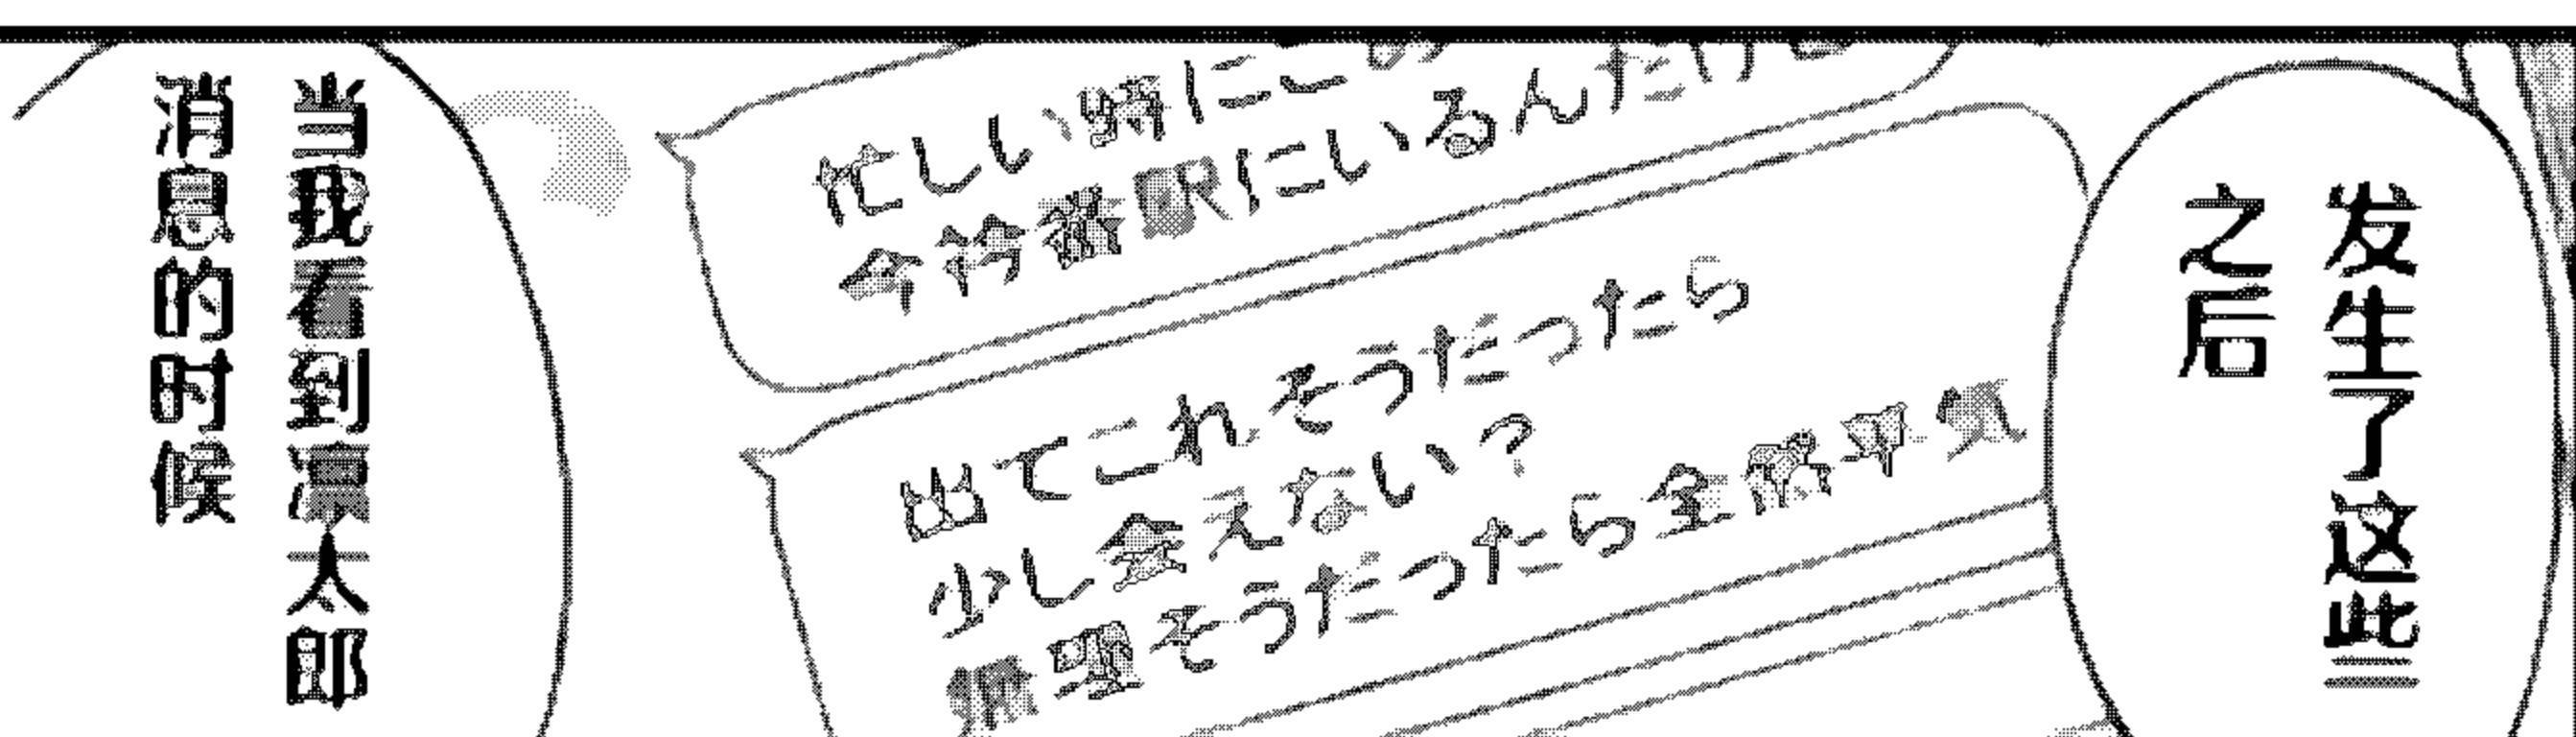 发生了这些
之后
忙しい時にごめ
今桜駅にいるんだけ
出てこれそうだったら
少し会えない？
無理そうだったら全然平気
当我看到凛太郎
消息的时候